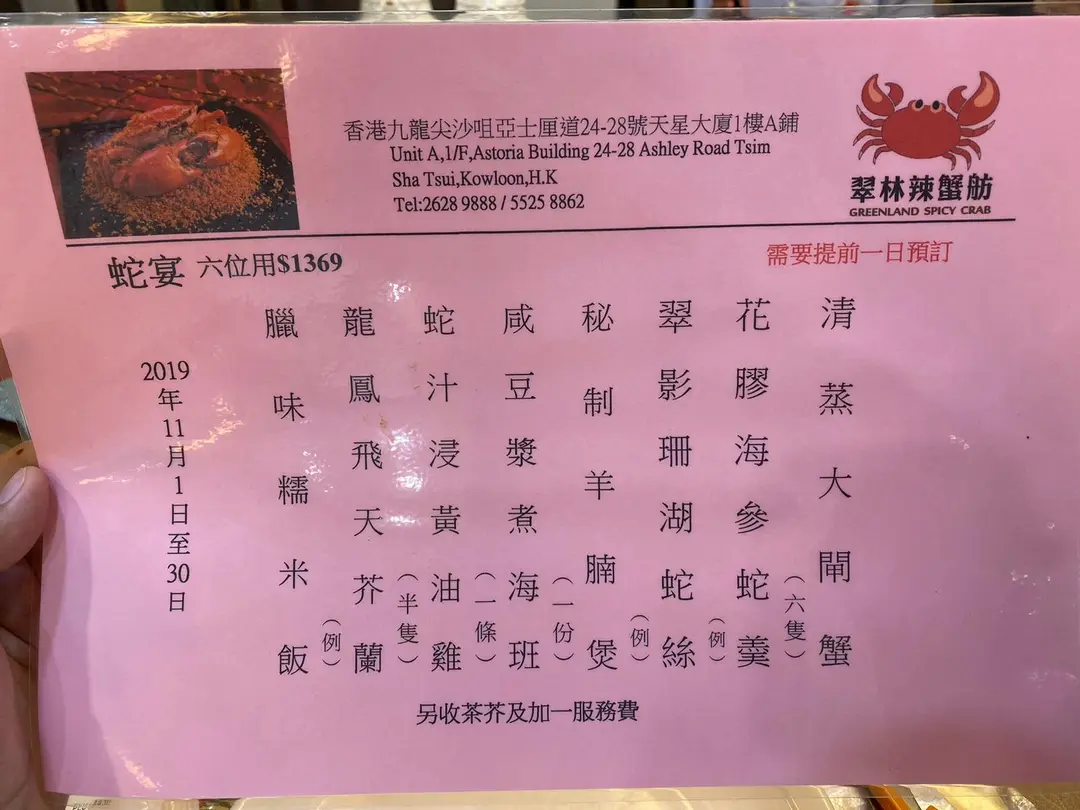 香港九龍尖沙咀亞士厘道24-28號天星大廈1樓A鋪
Unit A,1/F,Astoria Building 24-28 Ashley Road Tsim
Sha Tsui,Kowloon,H.K
Tel:2628 9888 / 5525 8862
翠林辣蟹舫
GREENLAND SPICY CRAB
蛇宴 六位用$1369
需要提前一日預訂
清蒸大閘蟹
(六隻)
花膠海參蛇羹
(例)
翠影珊湖蛇絲
(例)
秘制羊腩煲
(一份)
咸豆漿煮海班
(一條)
蛇汁浸黃油雞
(半隻)
龍鳳飛天芥蘭
(例)
臘味糯米飯
2019年11月1日至30日
另收茶芥及加一服務費